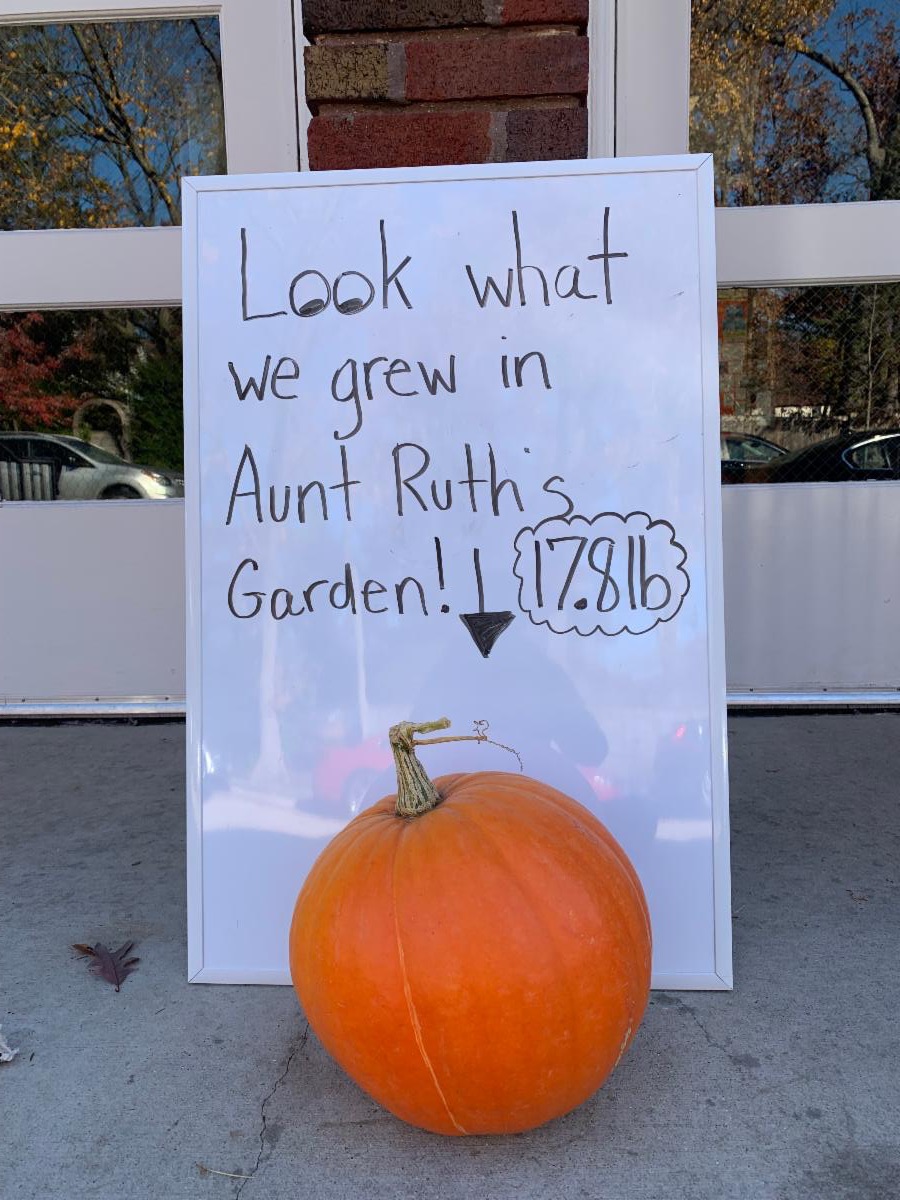 Look what
we grew in
Aunt Ruth's
Garden! 17.8lb